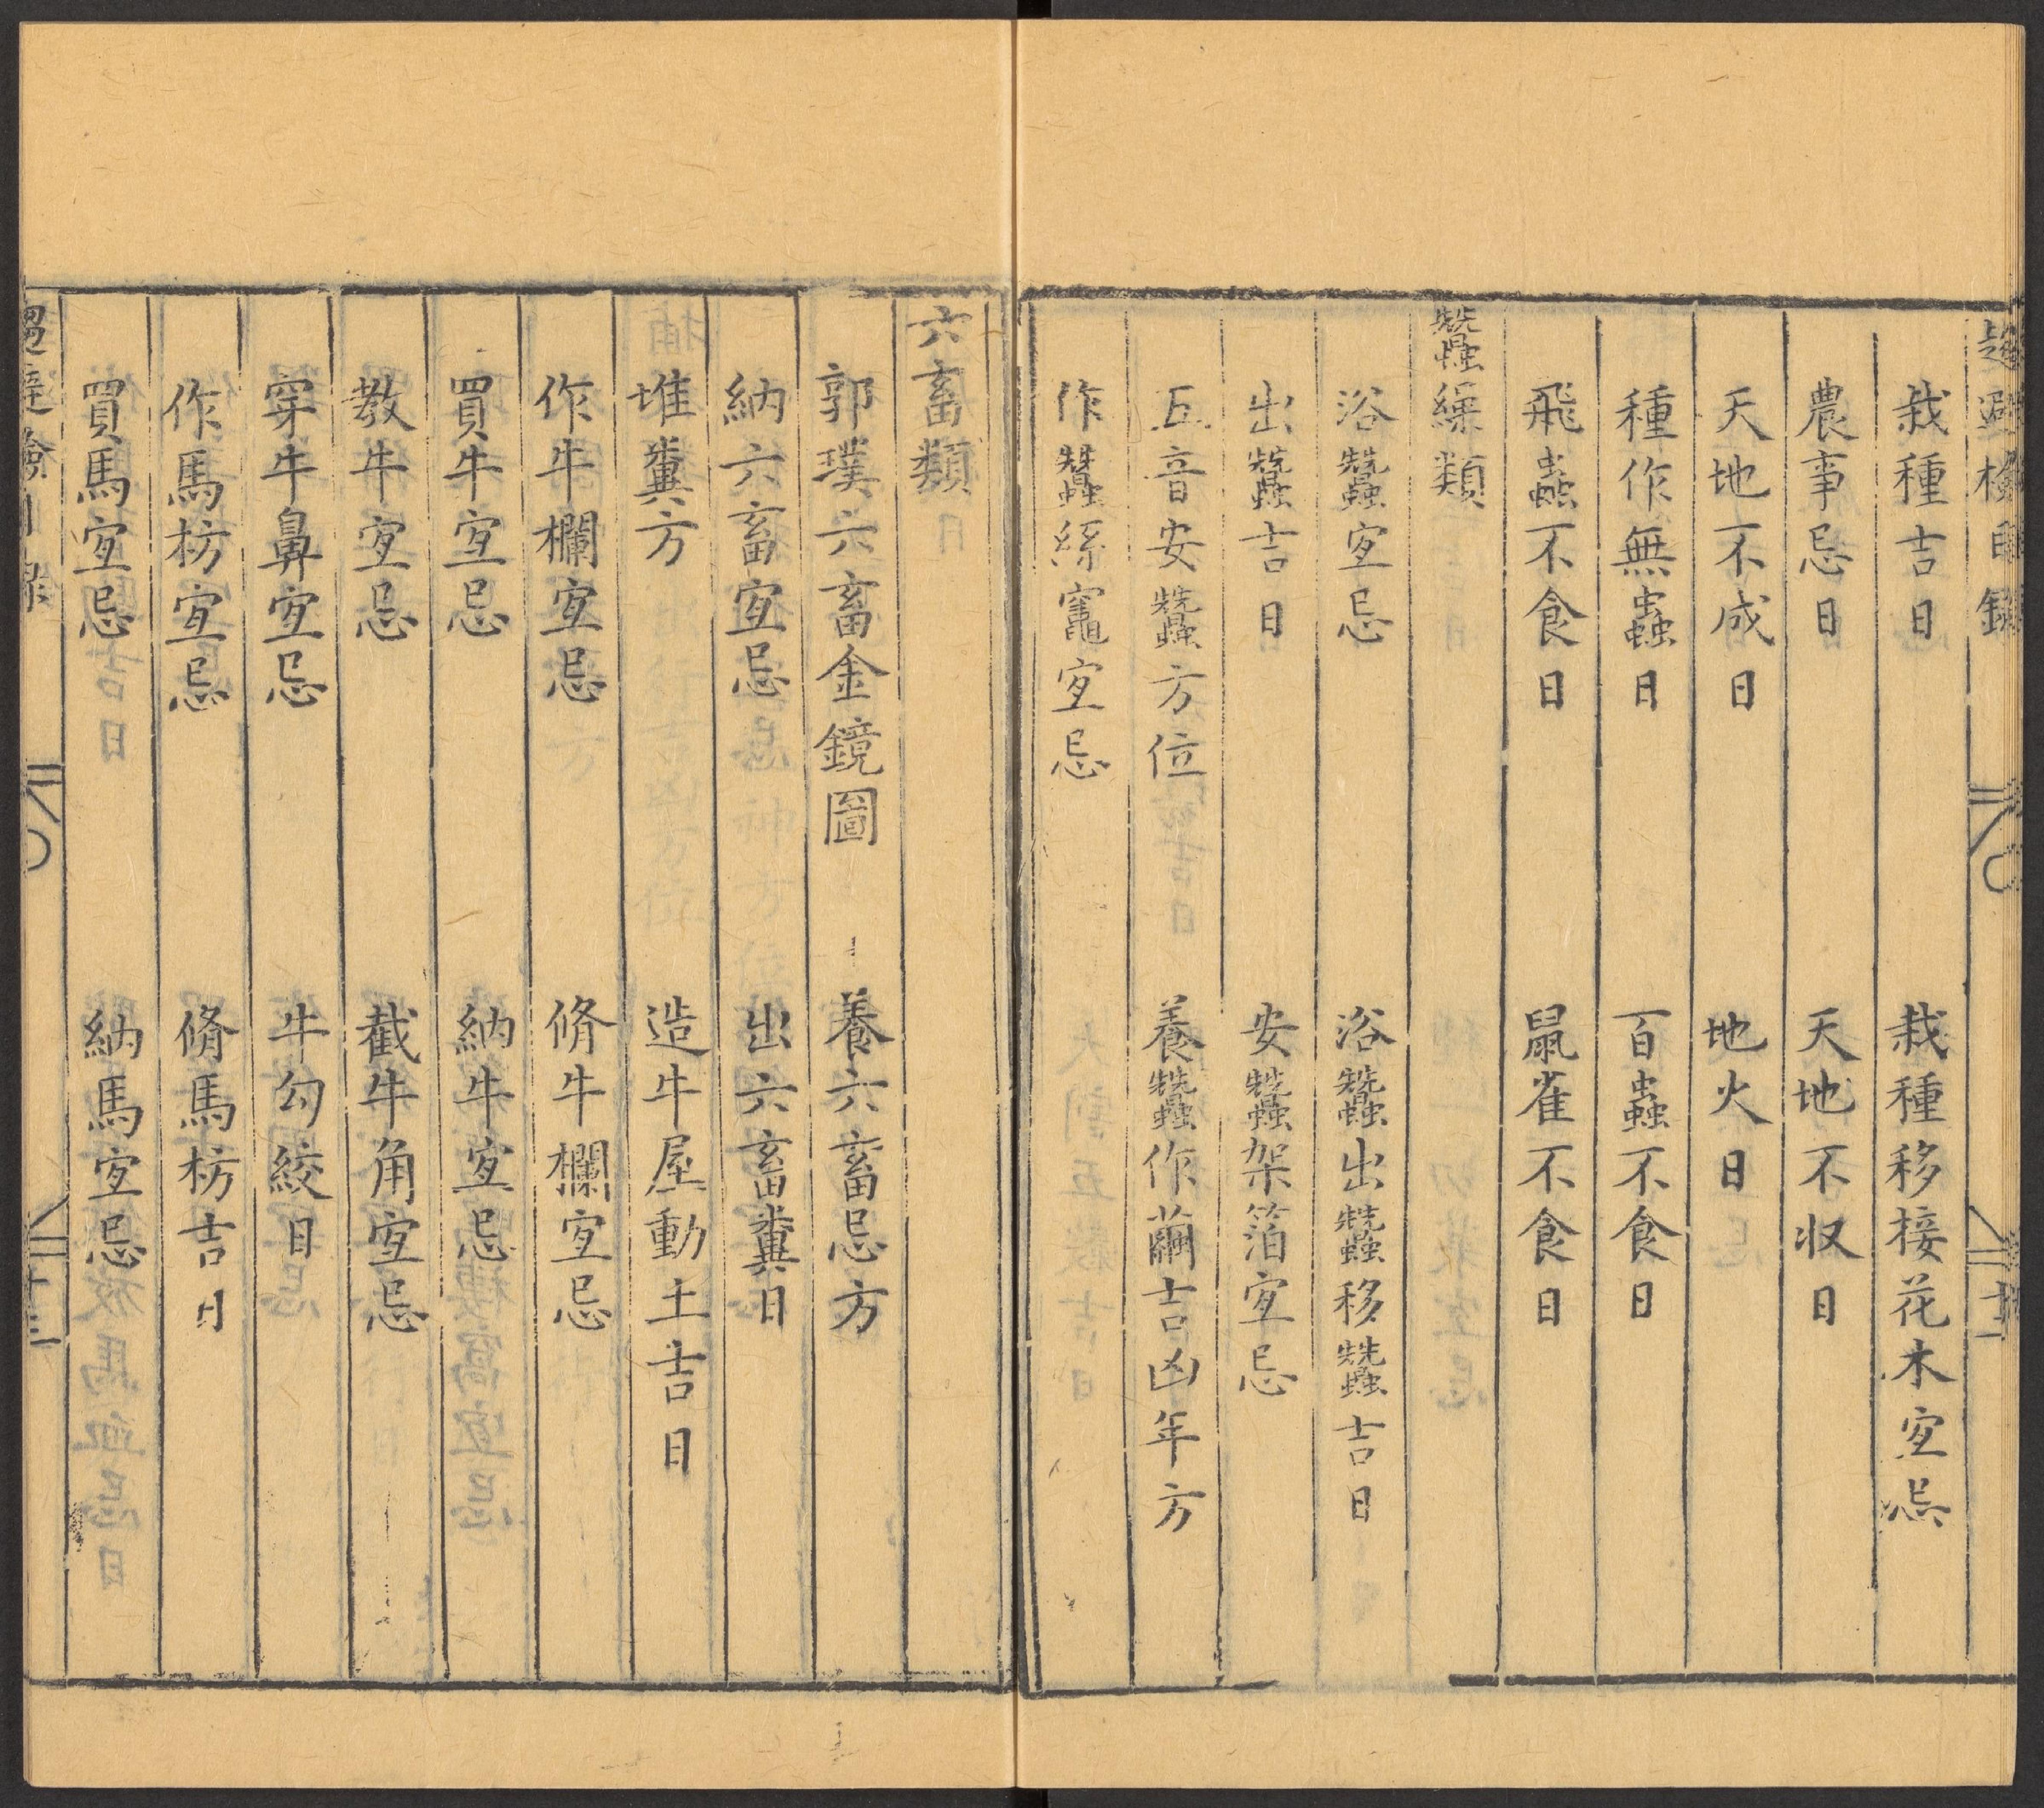 趨避檢目錄
栽種吉日　栽種移接花木宐忌
農事忌日　天地不収日
天地不成日　地火日
種作無蟲日　百蟲不食日
飛蟲不食日　鼠雀不食日
蠶繰類
浴蠶宐忌　浴蠶出蠶移蠶吉日
出蠶吉日　安蠶架箔宐忌
五音安蠶方位　養蠶作繭吉凶年方
作蠶絲竈宐忌
六畜類
郭璞六畜金鏡圖　養六畜忌方
納六畜宐忌　出六畜糞日
堆糞方　造牛屋動土吉日
作牛欄宐忌　脩牛欄宐忌
買牛宐忌　納牛宐忌
敎牛宐忌　截牛角宐忌
穿牛鼻宐忌　牛勾絞日
作馬枋宐忌　脩馬枋吉日
買馬宐忌　納馬宐忌
十三